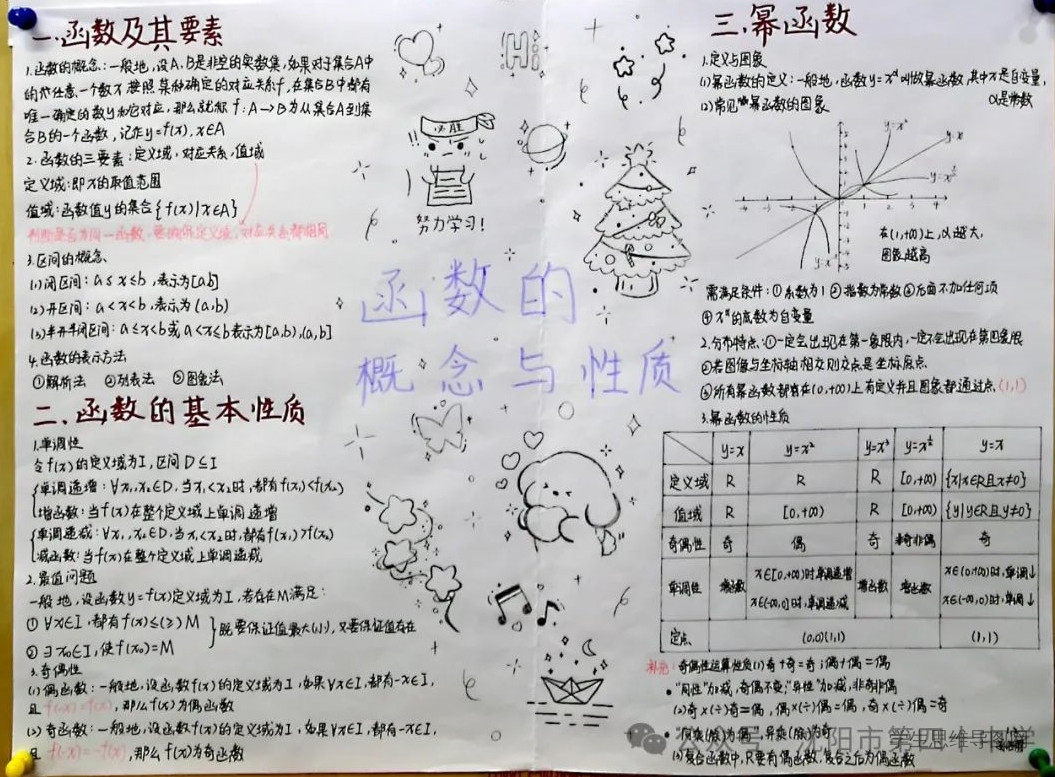 一.函数及其要素
1.函数的概念:一般地,设A、B是非空的实数集,如果对于集合A中
的任意一个数x按照某种确定的对应关系f,在集合B中都有
唯一确定的数y和它对应,那么就称f:A→B为从集合A到集
合B的一个函数,记作y=f(x),x∈A
2.函数的三要素:定义域,对应关系,值域
定义域:即x的取值范围
值域:函数值y的集合{f(x)|x∈A}
判断是否为同一函数,要确保定义域,对应关系都相同
3.区间的概念
(1)闭区间:a≤x≤b,表示为[a,b]
(2)开区间:a<x<b,表示为(a,b)
(3)半开半闭区间:a≤x<b或a<x≤b表示为[a,b),(a,b]
4.函数的表示方法
①解析法 ②列表法 ③图象法
二.函数的基本性质
1.单调性
令f(x)的定义域为I,区间D⊆I
单调递增:∀x₁,x₂∈D,当x₁<x₂时,都有f(x₁)<f(x₂)
增函数:当f(x)在整个定义域上单调递增
单调递减:∀x₁,x₂∈D,当x₁<x₂时,都有f(x₁)>f(x₂)
减函数:当f(x)在整个定义域上单调递减
2.最值问题
一般地,设函数y=f(x)定义域为I,若存在M满足:
①∀x∈I,都有f(x)≤(≥)M
②∃x₀∈I,使f(x₀)=M
既要保证值最大(小),又要保证值存在
3.奇偶性
(1)偶函数:一般地,设函数f(x)的定义域为I,如果∀x∈I,都有-x∈I,
且f(-x)=f(x),那么f(x)为偶函数
(2)奇函数:一般地,设函数f(x)的定义域为I,如果∀x∈I,都有-x∈I,
且f(-x)=-f(x),那么f(x)为奇函数
必胜
努力学习!
函数的
概念与性质
三.幂函数
1.定义与图象
(1)幂函数的定义:一般地,函数y=xᵅ叫做幂函数,其中x是自变量,
α是常数
(2)常见幂函数的图象
y=x²
y=x
在(1,+∞)上,α越大,
图象越高
需满足条件:①系数为1 ②指数为常数 ③后面不加任何项
④xᵅ的底数为自变量
2.分布特点:①一定会出现在第一象限内,一定不会出现在第四象限
②若图像与坐标轴相交则交点是坐标原点
③所有幂函数都有在(0,+∞)上有定义并且图象都通过点(1,1)
3.幂函数的性质
y=x y=x² y=x³ y=x^½ y=x
定义域 R R R [0,+∞) {x|x∈R且x≠0}
值域 R [0,+∞) R [0,+∞) {y|y∈R且y≠0}
奇偶性 奇 偶 奇 非奇非偶 奇
单调性 增函数 x∈[0,+∞)时单调递增 增函数 增函数 x∈(0,+∞)时,单调↓
x∈(-∞,0]时,单调递减 x∈(-∞,0)时,单调↓
定点 (0,0)(1,1) (1,1)
补充:奇偶性运算性质(1)奇+奇=奇;偶+偶=偶
•"同性"加减,奇偶不变;"异性"加减,非奇非偶
(2)奇×(÷)奇=偶,偶×(÷)偶=偶,奇×(÷)偶=奇
•同乘(除)为偶,异乘(除)为奇
(3)复合函数中,只要有偶函数,复合之后为偶函数
公众号·沈阳市第四十中学